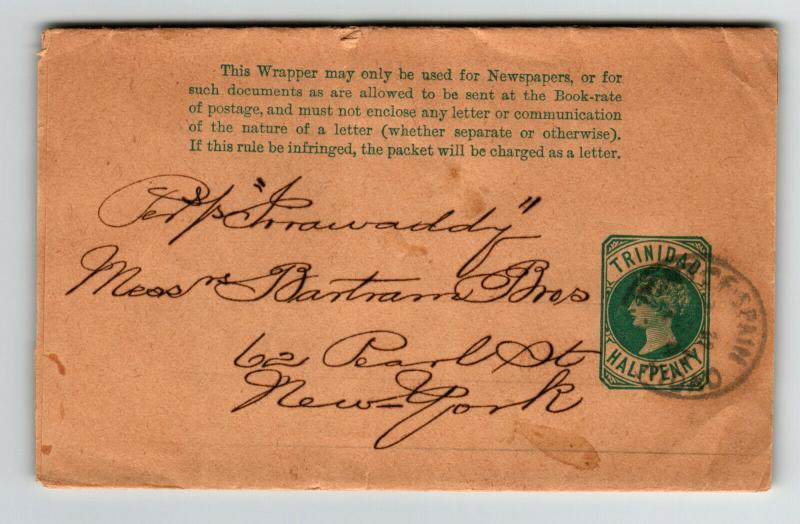 This Wrapper may only be used for Newspapers, or for
such documents as are allowed to be sent at the Book-rate
of postage, and must not enclose any letter or communication
of the nature of a letter (whether separate or otherwise).
If this rule be infringed, the packet will be charged as a letter.
Per s/s "Irrawaddy"
Messrs Bartram Bros
62 Pearl St
New-York
TRINIDAD
HALFPENNY
OF SPAIN